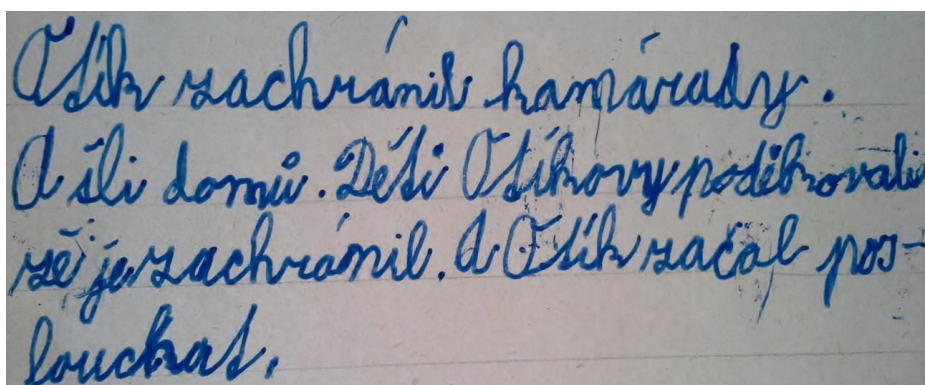 Otík zachránil kamárady.
A šli domů. Děti Otíkovy poděkovali
zě je zachránil. A Otík začal pos-
louchat.